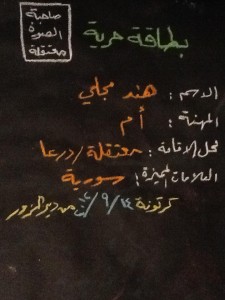 صاحبة
الصورة
معتقلة
بطاقة حرية
الاسم : هند مجلي
المهنة : أم
محل الاقامة : معتقلة/درعا
العلامات المميزة : سورية
كرتونة ١٤/٩/ من دير الزور